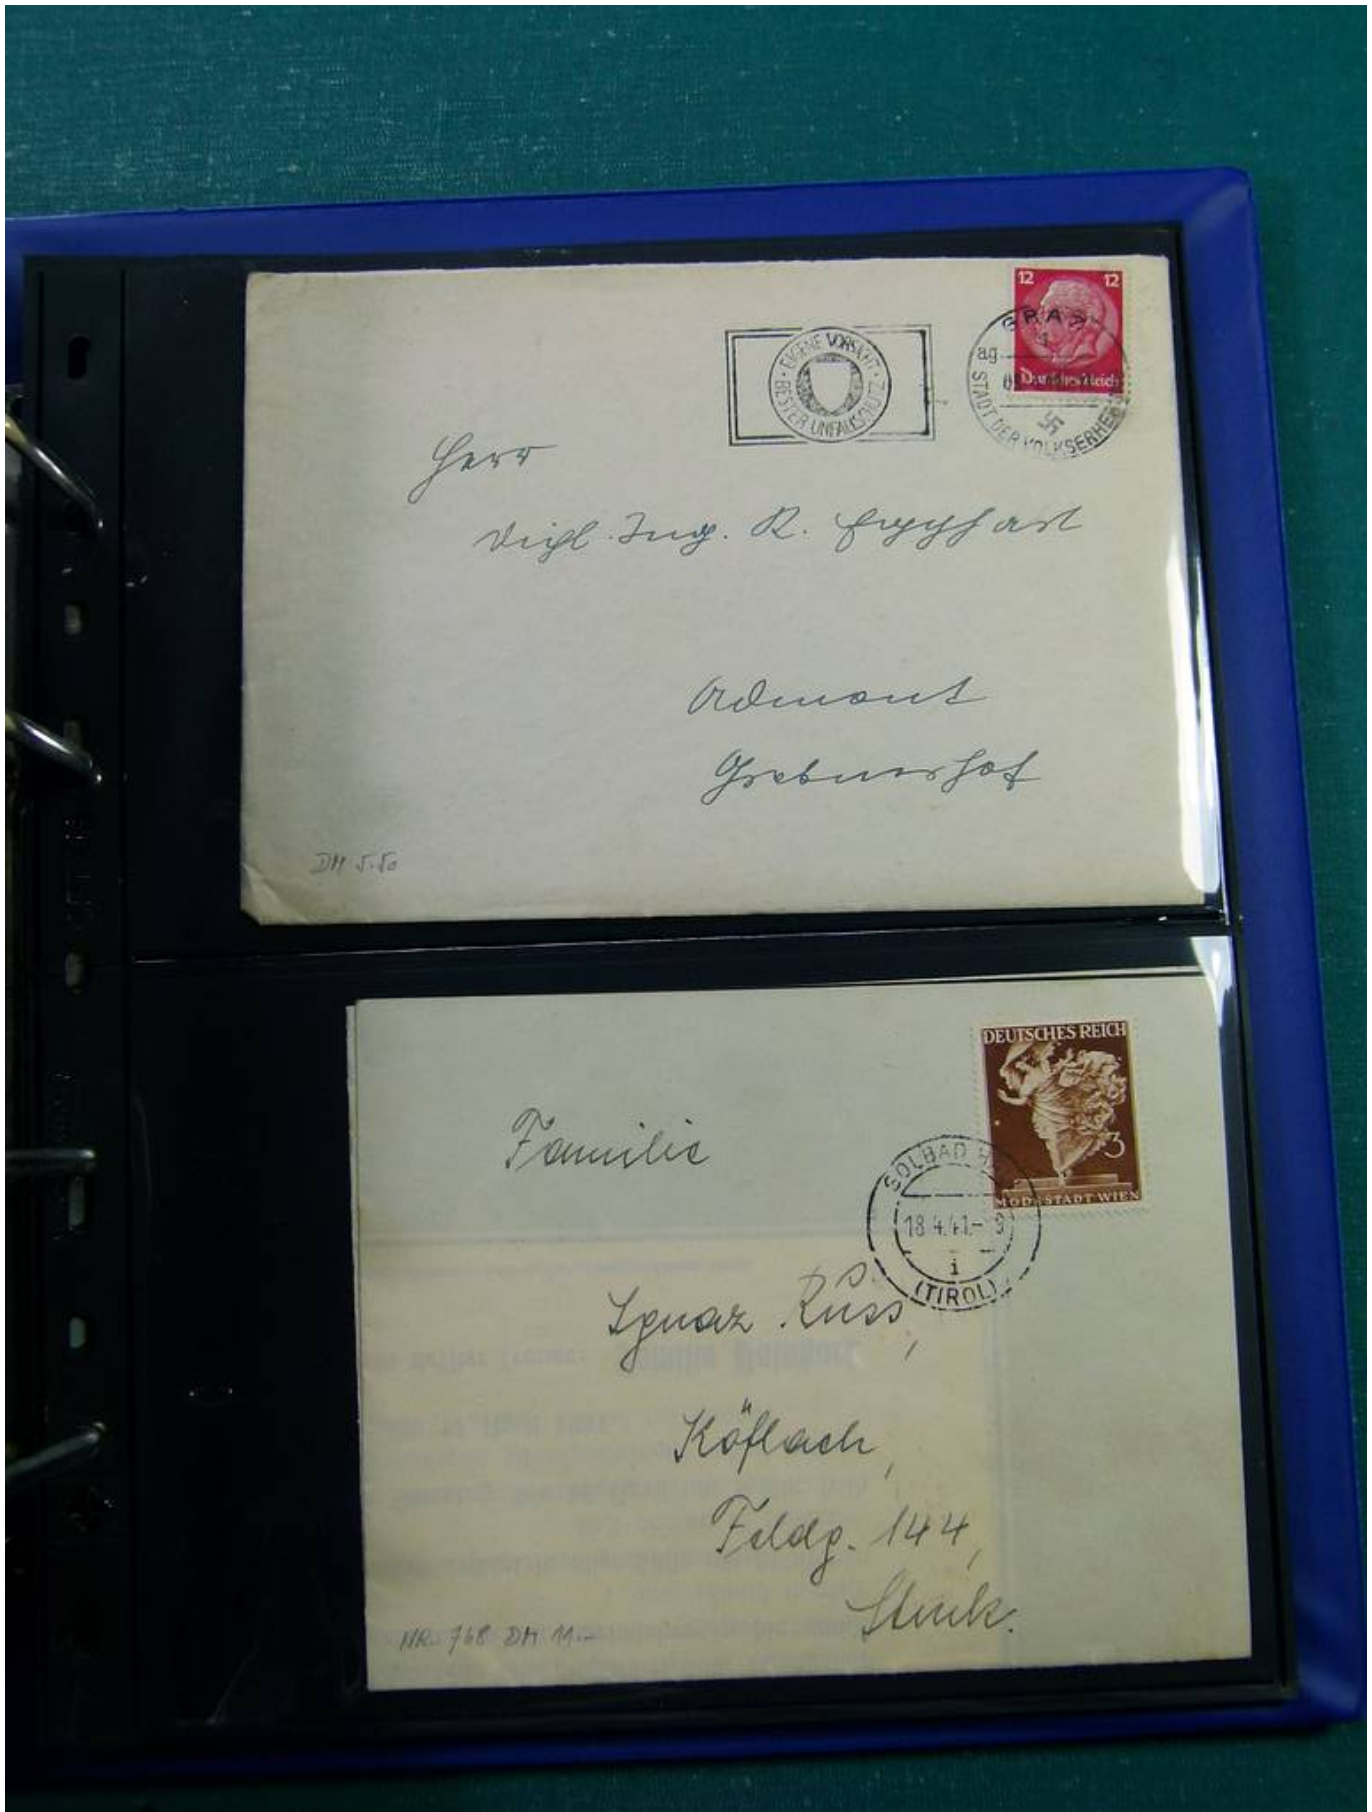 12 12
Deutsches Reich
GRAZ
ag
STADT DER VOLKSERHEBUNG
EIGENE VORSICHT · BESTER UNFALLSCHUTZ ·
Herr
Dipl. Ing. R.
Admont
Grabnerhof
DM 5.50
DEUTSCHES REICH
3
MODESTADT WIEN
SOLBAD H
18.4.41.- 9
i
(TIROL)
Familie
Ignaz Russ,
Köflach,
Feldg. 144,
NR. 768 DM 11.-